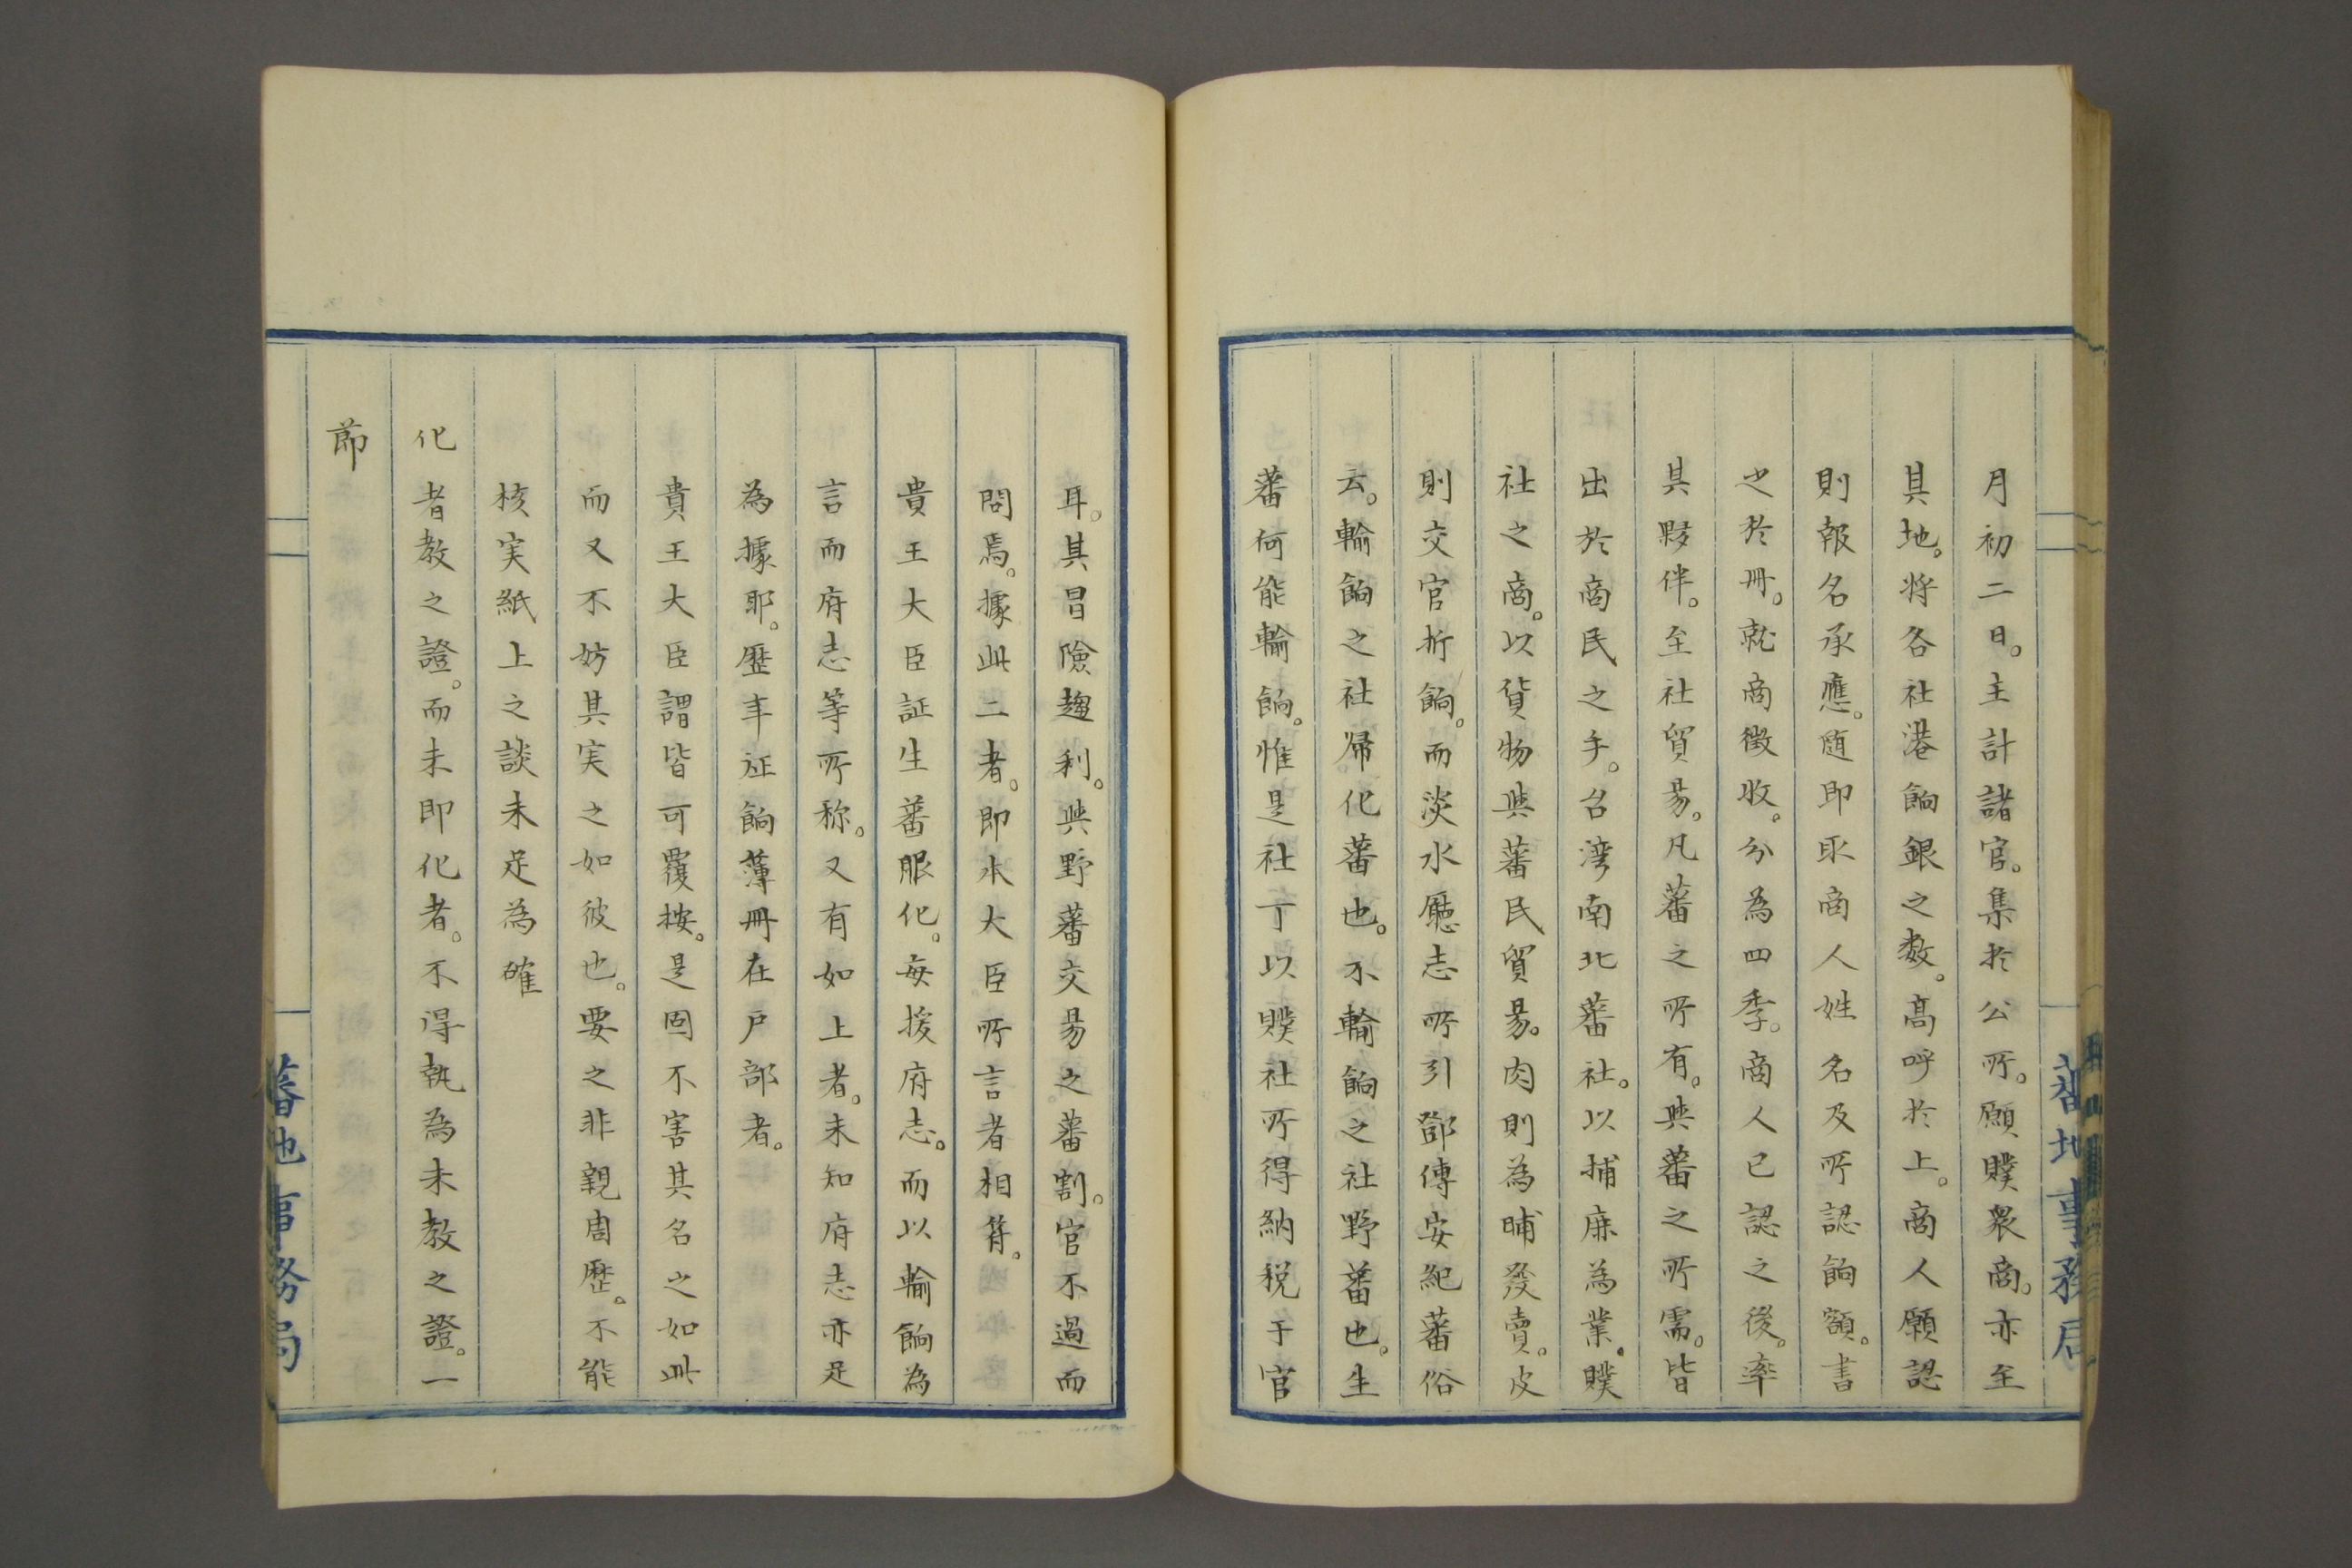 月初二日。主計諸官。集於公所。願贌衆商。亦至
其地。将各社港餉銀之数。高呼於上。商人願認
則報名承應。随即取商人姓名及所認餉額。書
之於冊。就商徴收。分為四季。商人已認之後。率
其夥伴。至社貿易。凡蕃之所有。與蕃之所需。皆
出於商民之手。台湾南北蕃社。以捕鹿為業。贌
社之商。以貨物與蕃民貿易。肉則為晡発賣。皮
則交官折餉。而淡水廳志所引鄧傳安紀蕃俗
云。輸餉之社帰化蕃也。不輸餉之社野蕃也。生
蕃何能輸餉。惟是社丁以贌社所得納税于官
蕃地事務局
耳。其冒險趨利。與野蕃交易之蕃割。官不過而
問焉。據此二者。即本大臣所言者相符。
貴王大臣証生蕃服化。每援府志。而以輸餉為
言而府志等所称。又有如上者。未知府志亦足
為據耶。歴年征餉薄冊在戸部者。
貴王大臣謂皆可覆按。是固不害其名之如此
而又不妨其実之如彼也。要之非親周歴。不能
核実紙上之談未足為確
化者教之證。而未即化者。不得執為未教之證。一
節
蕃地事務局